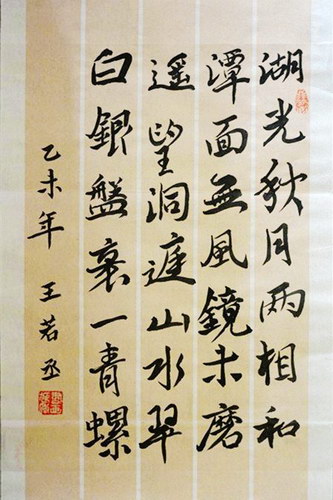 湖光秋月兩相和
潭面無風鏡未磨
遥望洞庭山水翠
白銀盤裏一青螺
乙未年 王若丞